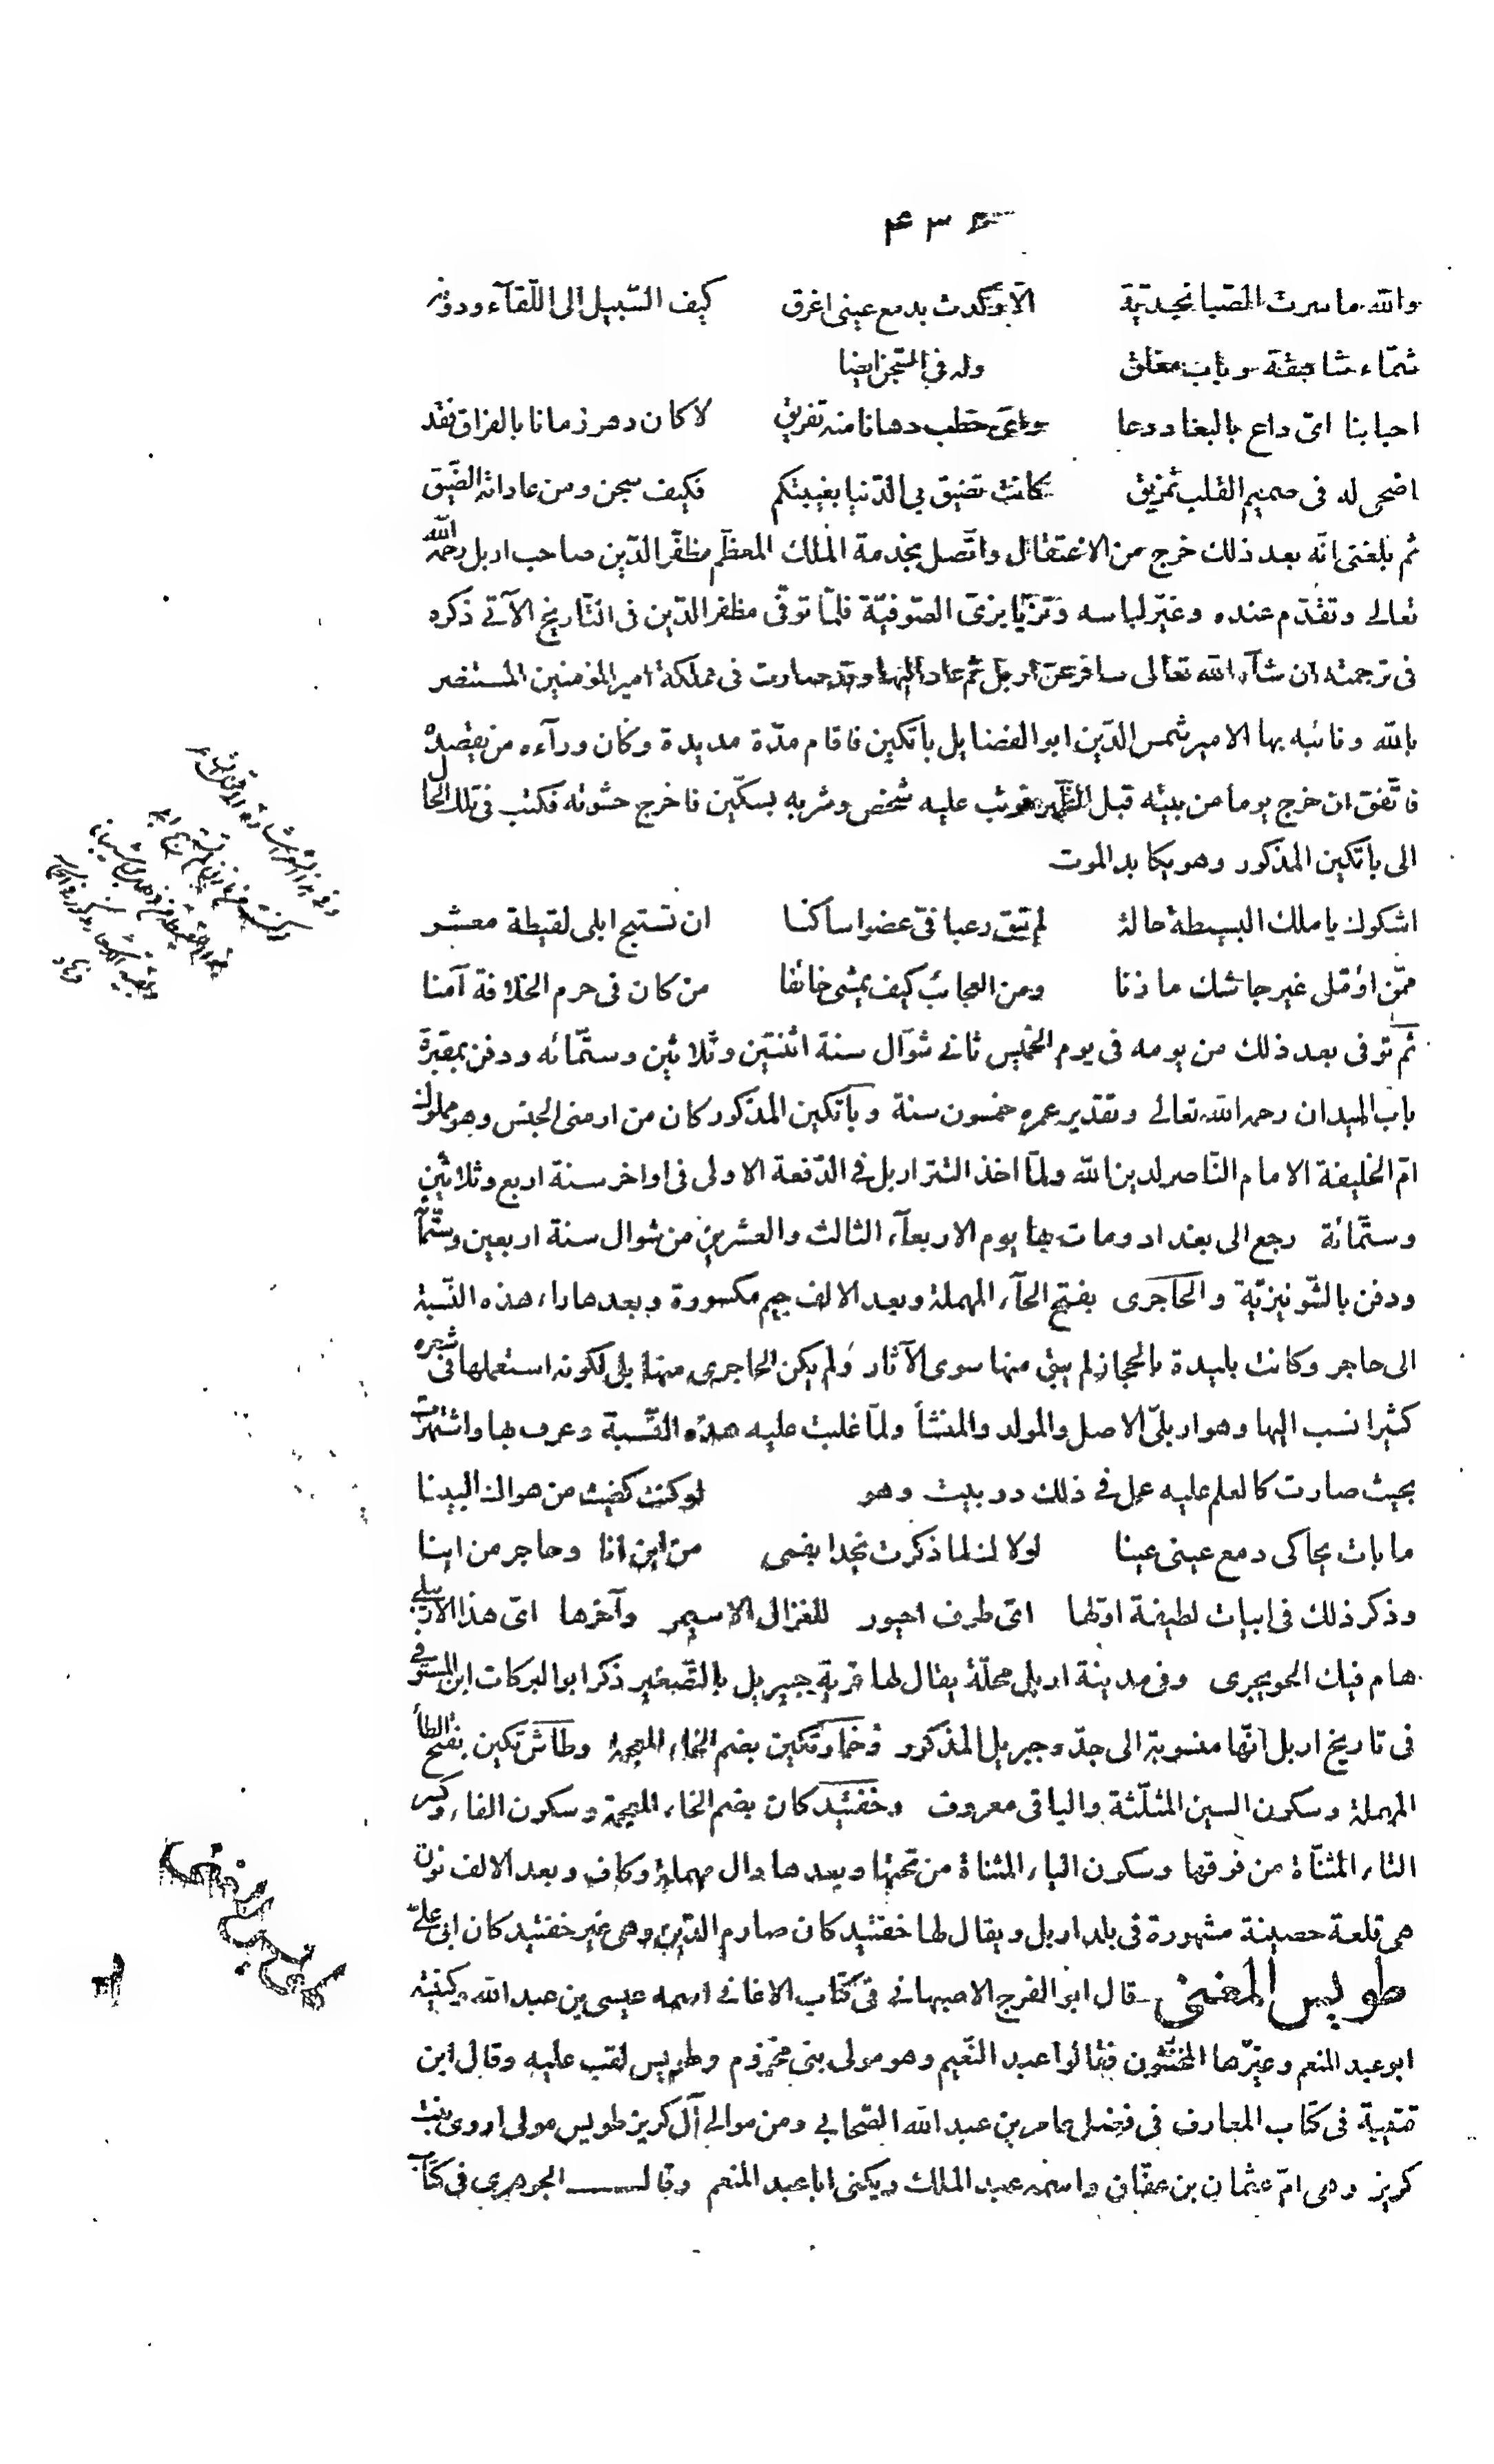 والله ما سرت الصبا نجديّة الّا وكدت بدمع عينى اغرق كيف السّبيل الى اللّقآء ودونه
شمّاء شاهقة وباب مغلق وله فى السّجن ايضا
احبابنا اىّ داع بالبعاد دعا واىّ خطب دهانا منه تفريق لا كان دهر زمانا بالفراق فقد
اضحى له فى صميم القلب تمزيق كانت تضيق بى الدّنيا بغيبتكم فكيف سجن ومن عاداته الضّيق
ثم بلغنى انّه بعد ذلك خرج من الاعتقال واتّصل بخدمة الملك المعظّم مظفّر الدّين صاحب اربل رحمه الله
تعالى وتقدّم عنده وغيّر لباسه وتزيّا بزىّ الصّوفيّة فلمّا توفّى مظفر الدّين فى التّاريخ الآتى ذكره
فى ترجمته ان شآء الله تعالى سافر عن اربل ثم عاد اليها وقد صارت فى مملكة امير المؤمنين المستنصر
بالله ونائبه بها الامير شمس الدّين ابو الفضايل باتكين فاقام مدّة مديدة وكان ورآءه من يقصده
فاتّفق ان خرج يوما من بيته قبل الظهر فوثب عليه شخص وضربه بسكّين فاخرج حشوته فكتب فى تلك الحال
الى باتكين المذكور وهو يكابد الموت
اشكوك يا ملك البسيطة حالة لم تبق رعبا فىّ عضوا ساكنا ان تستبج ابلى لقيطة معشر
ممّن اؤمّل غير جاشك ما ذنا ومن العجائب كيف يمشى خائفا من كان فى حرم الخلافة آمنا
ثم توفى بعد ذلك من يومه فى يوم الخميس ثانى شوّال سنة اثنتين وثلاثين وستّمائه ودفن بمقبرة
باب الميدان رحمه الله تعالى وتقدير عمره خمسون سنة وباتكين المذكور كان من ارمنى الجنس وهو مملوك
امّ الخليفة الامام النّاصر لدين الله ولمّا اخذ التتر اربل فى الدّفعة الاولى فى اواخر سنة اربع وثلاثين
وستّمائة رجع الى بغداد ومات بها يوم الاربعآء الثالث والعشرين من شوال سنة اربعين وستّمأئة
ودفن بالشّونيزيّة والحاجرى بفتح الحآء المهملة وبعد الالف جيم مكسورة وبعدها راء هذه النّسبة
الى حاجر وكانت بليدة بالحجاز لم يبق منها سوى الآثار ولم يكن الحاجرى منها بل لكونه استعملها فى شعره
كثيرا نسب اليها وهو اربلىّ الاصل والمولد والمنشأ ولمّا غلبت عليه هذه النّسبة وعرف بها واشتهرت
بحيث صارت كالعلم عليه عمل فى ذلك دو بيت وهو لو كنت كفيت من هواك البينا
ما بات يحاكى دمع عينى عينا لولاك لما ذكرت نجدا بفمى من اين انا وحاجر من اينا
وذكر ذلك فى ابيات لطيفة اوّلها اىّ طرف احيور للغزال الاسيمر وآخرها اىّ هذا الاربلى
هام فيك الحويجرى وفى مدينة اربل محلّة يقال لها قرية جبريل بالتّصغير ذكر ابو البركات ابن المستوفى
فى تاريخ اربل انّها منسوبة الى جدّه جبريل المذكور وخمارتكين بضم الخاء المعجمة وطاشتكين بفتح الطأ
المهملة وسكون السين المثلّثة والباقى معروف وخفتيدكان بضم الخاء المعجمة وسكون الفاء وكسر
التاء المثنّاة من فوقها وسكون الياء المثناة من تحتها وبعدها دال مهملة وكاف وبعد الالف نون
هى قلعة حصينة مشهورة فى بلد اربل ويقال لها خفتيدكان صارم الدّين وهى غير خفتيدكان ابى على
طويس المغنى قال ابو الفرج الاصبهانى فى كتاب الاغانى اسمه عيسى بن عبد الله وكنيته
ابو عبد المنعم وغيّرها المخنّثون فقالوا عبد النّعيم وهو مولى بنى مخزوم وطويس لقب عليه وقال ابن
قتيبة فى كتاب المعارف فى فصل عامر بن عبد الله الصّحابى ومن موالى آل كريز طويس مولى اروى بنت
كريز وهى امّ عثمان بن عفّان واسمه عبد الملك ويكنى ابا عبد المنعم وقال الجوهرى فى كتاب
طويس المغنى